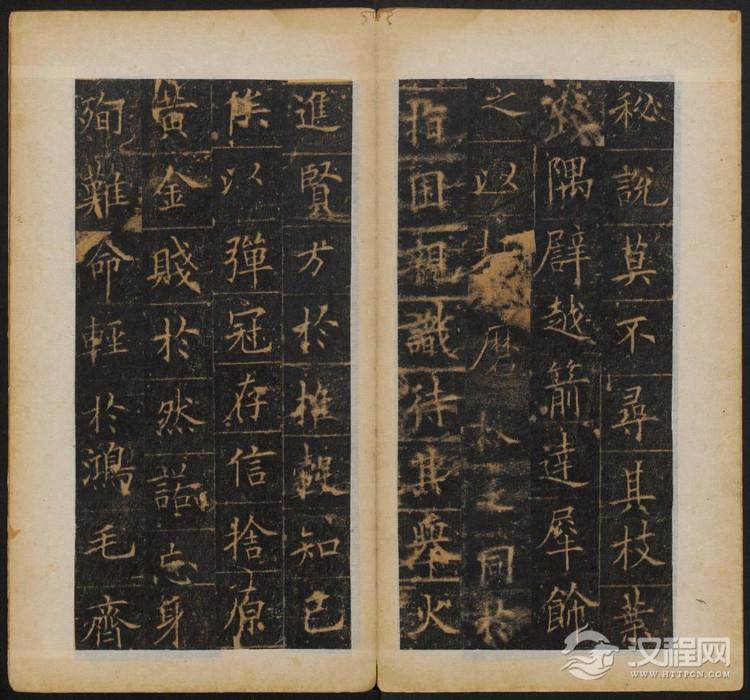 秘說莫不尋其枝葉
隅辟越箭達犀飾
之以磨同於
指囷親識待其舉火
進賢方於推轂知己
俟以彈冠存信捨原
黃金賤於然諾忘身
殉難命輕於鴻毛齊
汉程网
WWW.HTTPCN.COM